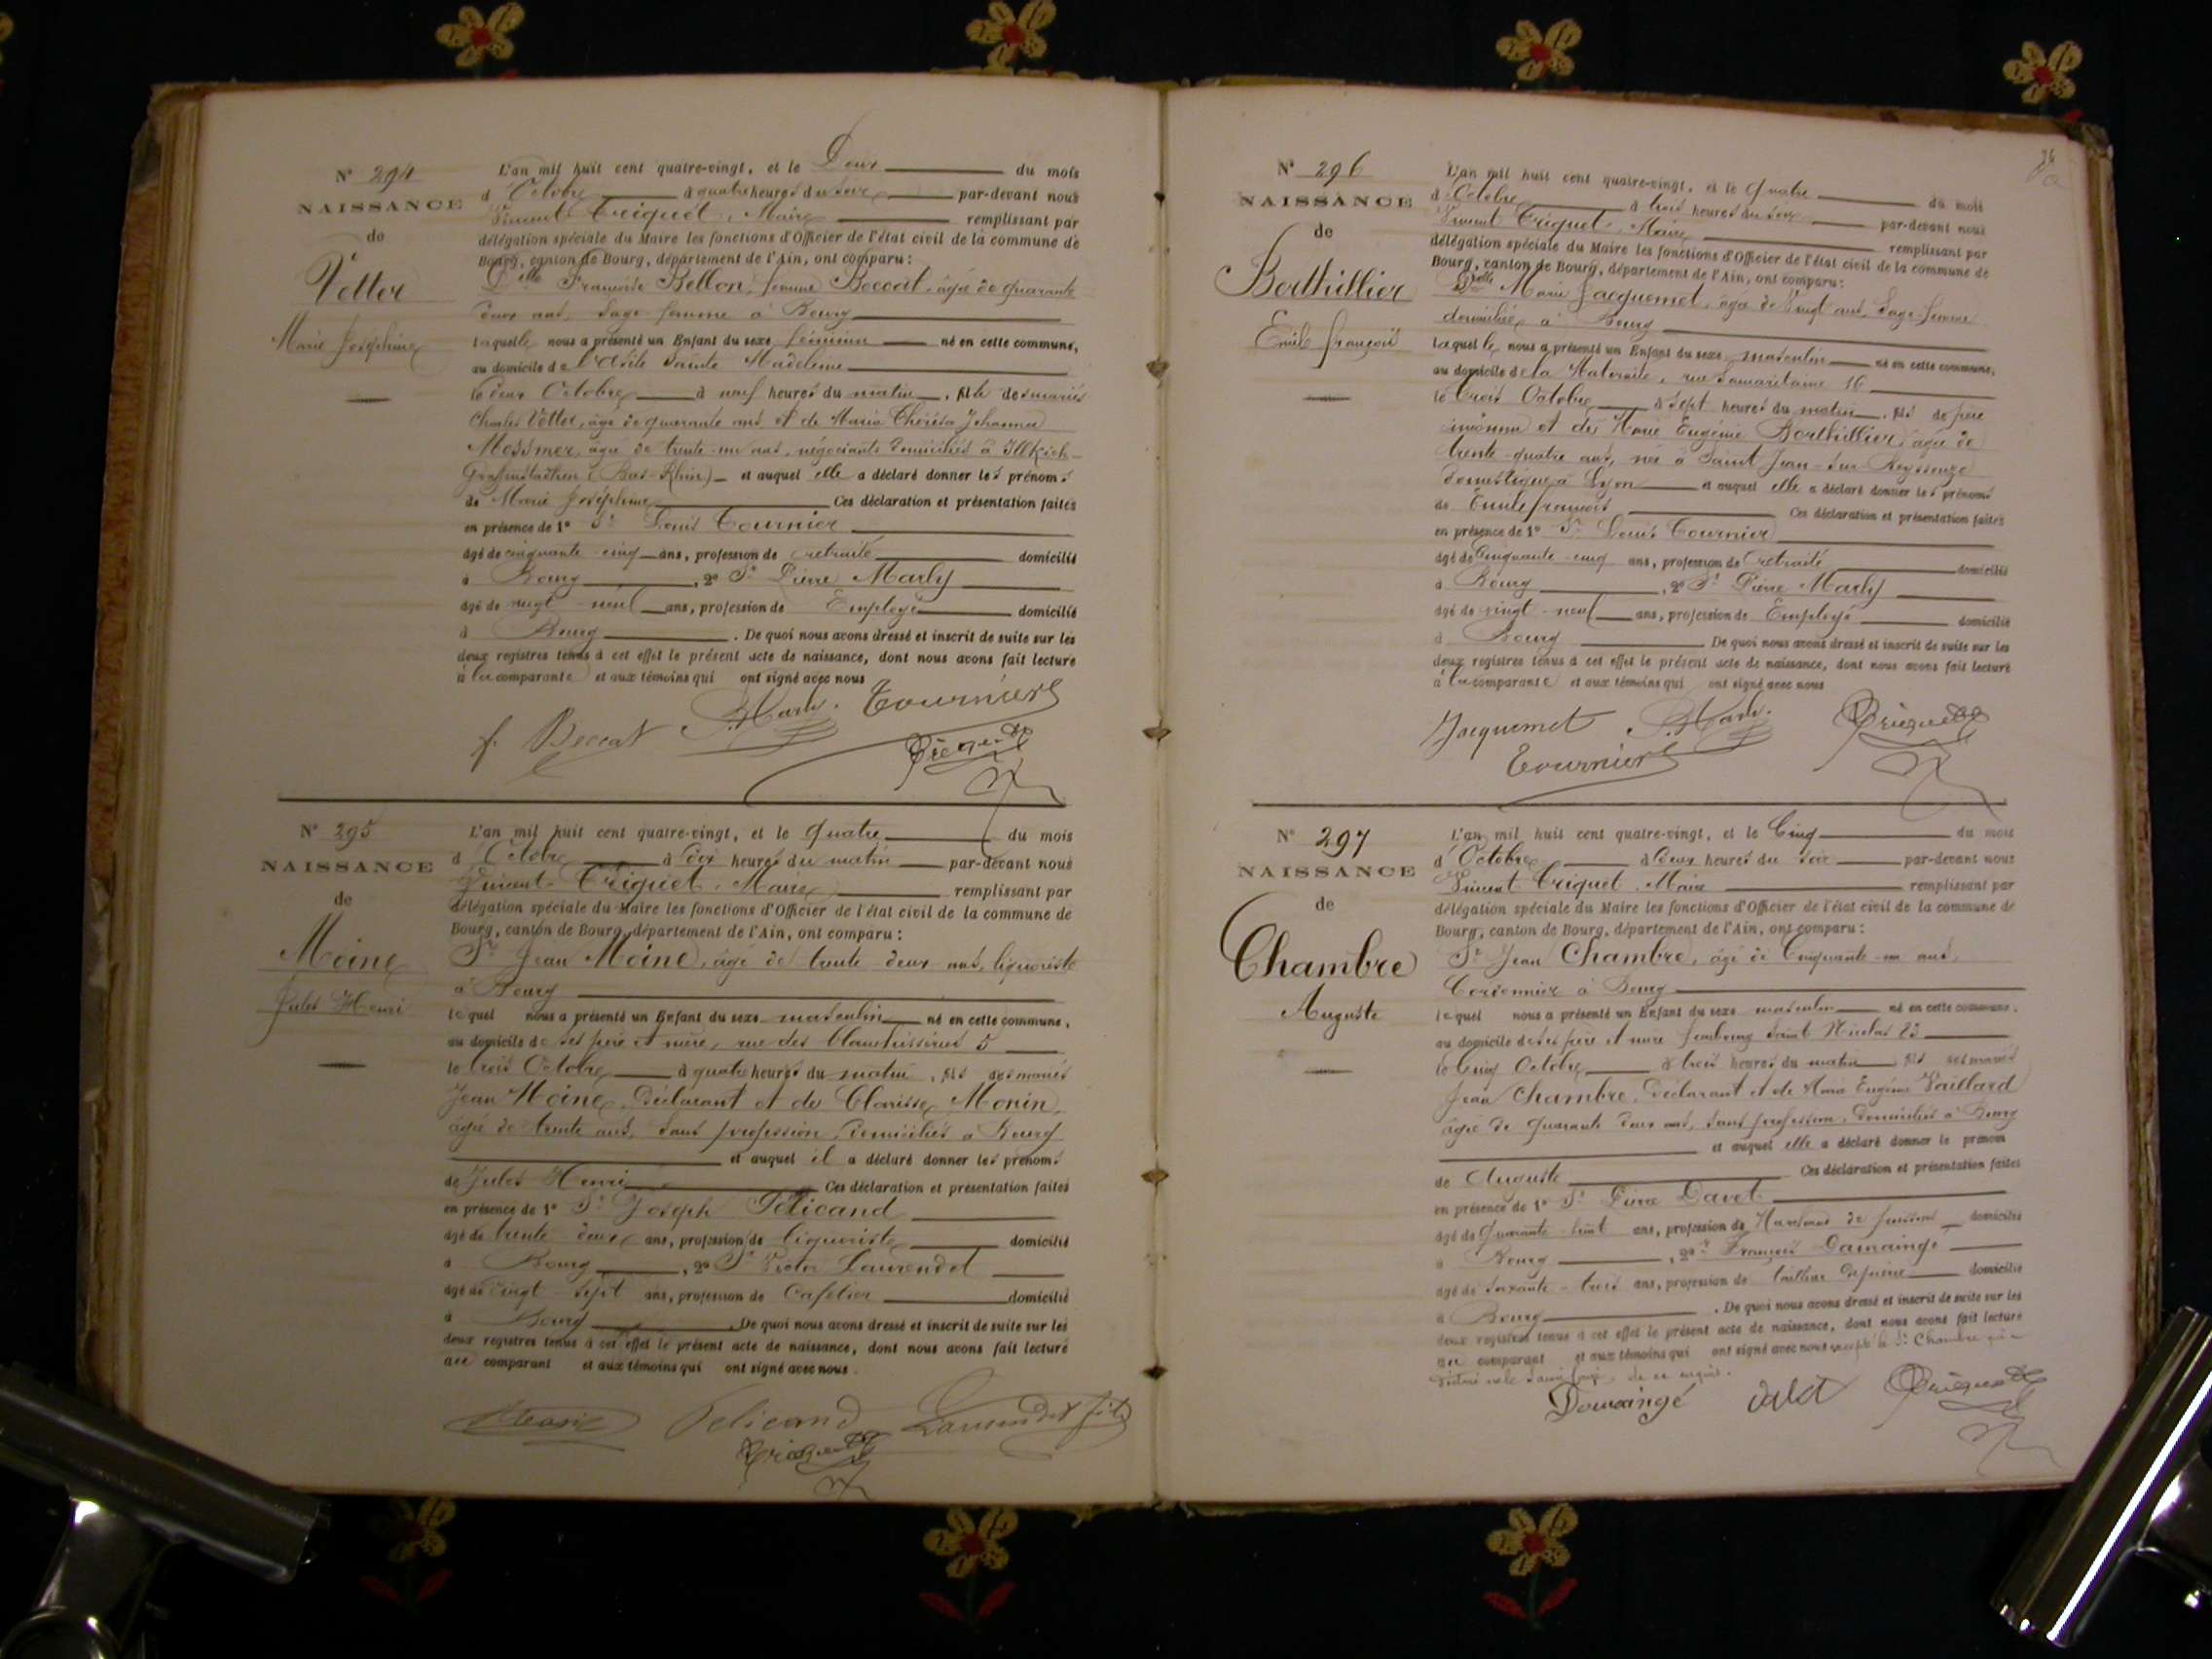 N° 294
NAISSANCE
de
Vetter
Marie Joséphine
L'an mil huit cent quatre-vingt, et le Deux du mois
d'Octobre à quatre heures du soir par-devant nous
Vincent Triquet, Maire remplissant par
délégation spéciale du Maire les fonctions d'Officier de l'état civil de la commune de
Bourg, canton de Bourg, département de l'Ain, ont comparu :
Delle Françoise Bellon, femme Beccat, âgée de quarante
deux ans, Sage-femme à Bourg
laquelle nous a présenté un Enfant du sexe féminin né en cette commune,
au domicile de l'Asile Sainte Madeleine
le deux Octobre à neuf heures du matin, fille des mariés
Charles Vetter, âgé de quarante ans et de Maria Thérésa Johanna
Messmer, âgée de trente-un ans, négociants domiciliés à Illkirch-
Graffenstaden (Bas-Rhin) et auquel elle a déclaré donner les prénoms
de Marie Joséphine Ces déclaration et présentation faites
en présence de 1° Sr Louis Tournier
âgé de cinquante-cinq ans, profession de retraité domicilié
à Bourg, 2° Sr Pierre Marly
âgé de vingt-neuf ans, profession de Employé domicilié
à Bourg. De quoi nous avons dressé et inscrit de suite sur les
deux registres tenus à cet effet le présent acte de naissance, dont nous avons fait lecture
à la comparante et aux témoins qui ont signé avec nous
f. Beccat P. Marly. Tournier
Triquet
N° 295
NAISSANCE
de
Moine
Jules Henri
L'an mil huit cent quatre-vingt, et le Quatre du mois
d'Octobre à dix heures du matin par-devant nous
Vincent Triquet, Maire remplissant par
délégation spéciale du Maire les fonctions d'Officier de l'état civil de la commune de
Bourg, canton de Bourg, département de l'Ain, ont comparu :
Sr Jean Moine, âgé de trente-deux ans, liquoriste
à Bourg
lequel nous a présenté un Enfant du sexe masculin né en cette commune,
au domicile de ses père et mère, rue des Blanchisseries 5
le trois Octobre à quatre heures du matin, fils des mariés
Jean Moine, Déclarant et de Clarisse Monin,
âgée de trente ans, sans profession, domiciliés à Bourg
et auquel il a déclaré donner les prénoms
de Jules Henri Ces déclaration et présentation faites
en présence de 1° Sr Joseph Pélicand
âgé de trente-deux ans, profession de liquoriste domicilié
à Bourg, 2° Sr Victor Laurendet
âgé de vingt-sept ans, profession de Cafetier domicilié
à Bourg. De quoi nous avons dressé et inscrit de suite sur les
deux registres tenus à cet effet le présent acte de naissance, dont nous avons fait lecture
au comparant et aux témoins qui ont signé avec nous.
Moine Pelicand Laurendet fils
Triquet
N° 296
NAISSANCE
de
Berthillier
Emile François
L'an mil huit cent quatre-vingt, et le Quatre du mois
d'Octobre à trois heures du soir par-devant nous
Vincent Triquet, Maire remplissant par
délégation spéciale du Maire les fonctions d'Officier de l'état civil de la commune de
Bourg, canton de Bourg, département de l'Ain, ont comparu :
Delle Marie Jacquemet, âgée de Vingt ans, Sage-femme
domiciliée à Bourg
laquelle nous a présenté un Enfant du sexe masculin né en cette commune,
au domicile de la Maternité, rue Samaritaine 16
le trois Octobre à sept heures du matin, fils de père
inconnu et de Marie Eugénie Berthillier âgée de
trente-quatre ans, née à Saint Jean-sur-Reyssouze
domestique à Lyon et auquel elle a déclaré donner les prénoms
de Emile François Ces déclaration et présentation faites
en présence de 1° Sr Louis Tournier
âgé de Cinquante-cinq ans, profession de retraité domicilié
à Bourg, 2° Sr Pierre Marly
âgé de vingt-neuf ans, profession de Employé domicilié
à Bourg De quoi nous avons dressé et inscrit de suite sur les
deux registres tenus à cet effet le présent acte de naissance, dont nous avons fait lecture
à la comparante et aux témoins qui ont signé avec nous
Jacquemet P. Marly. Triquet
Tournier
N° 297
NAISSANCE
de
Chambre
Auguste
L'an mil huit cent quatre-vingt, et le Cinq du mois
d'Octobre à deux heures du soir par-devant nous
Vincent Triquet, Maire remplissant par
délégation spéciale du Maire les fonctions d'Officier de l'état civil de la commune de
Bourg, canton de Bourg, département de l'Ain, ont comparu :
Sr Jean Chambre, âgé de Cinquante-un ans,
Cordonnier à Bourg
lequel nous a présenté un Enfant du sexe masculin né en cette commune,
au domicile de ses père et mère faubourg Saint Nicolas 23
le Cinq Octobre à trois heures du matin, fils des mariés
Jean Chambre, Déclarant et de Marie Eugénie Vaillard
âgée de Quarante deux ans, sans profession, domiciliés à Bourg
et auquel elle a déclaré donner le prénom
de Auguste Ces déclaration et présentation faites
en présence de 1° Sr Pierre Davet
âgé de Quarante-huit ans, profession de Marchand de domicilié
à Bourg, 2° Sr François Damaingé
âgé de soixante-trois ans, profession de tailleur domicilié
à Bourg. De quoi nous avons dressé et inscrit de suite sur les
deux registres tenus à cet effet le présent acte de naissance, dont nous avons fait lecture
au comparant et aux témoins qui ont signé avec nous excepté le Sr Chambre qui a
déclaré ne le savoir faire, de ce requis.
Domaingé Davet Triquet